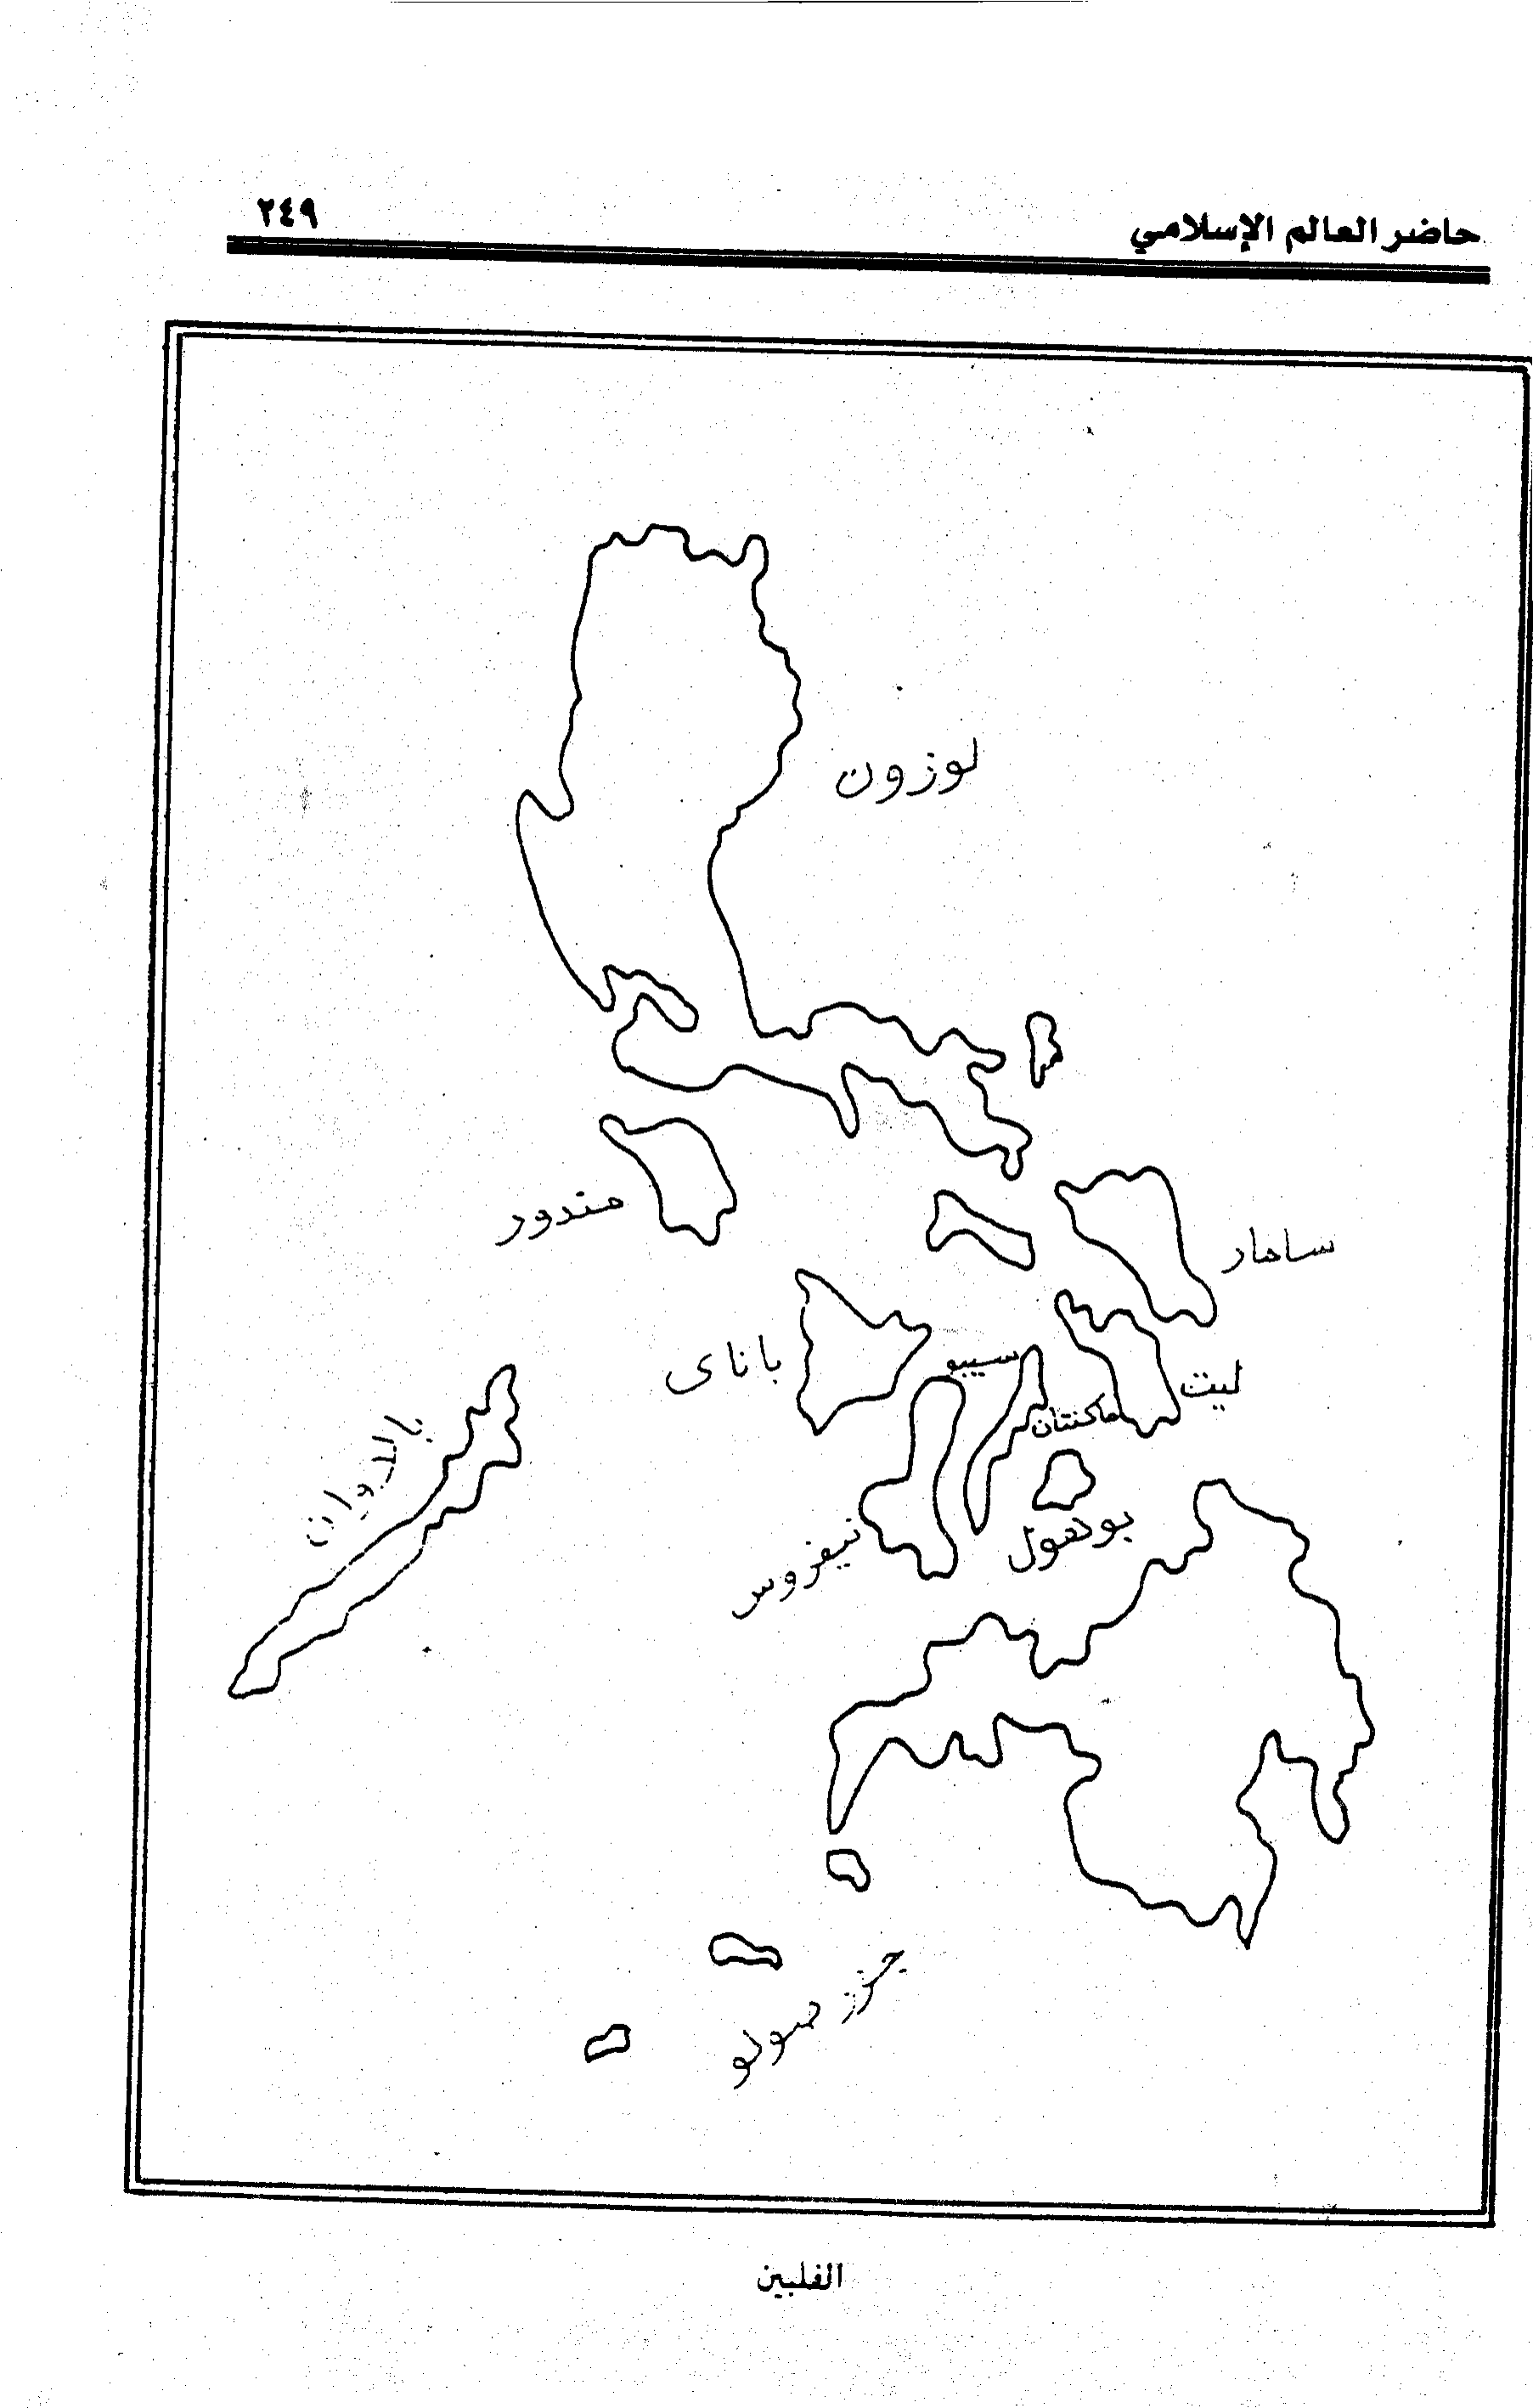 حاضر العالم الإسلامي
٢٤٩
لوزون
مندور
سامار
باناى
سيبو
ليت
ماكنتان
بالاوان
نيغروس
بودهول
جزر صولو
الفلبين